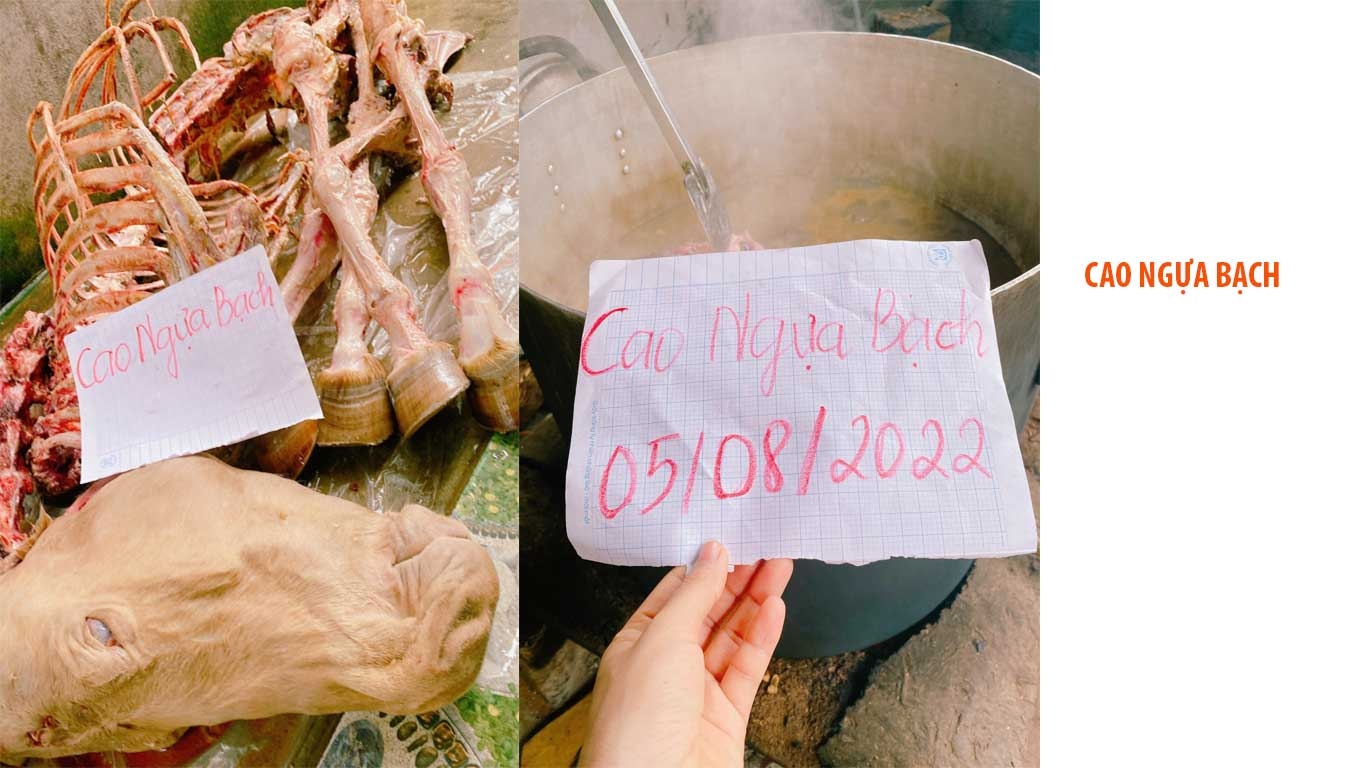 Cao Ngựa Bạch
Cao Ngựa Bạch
05/08/2022
CAO NGỰA BẠCH